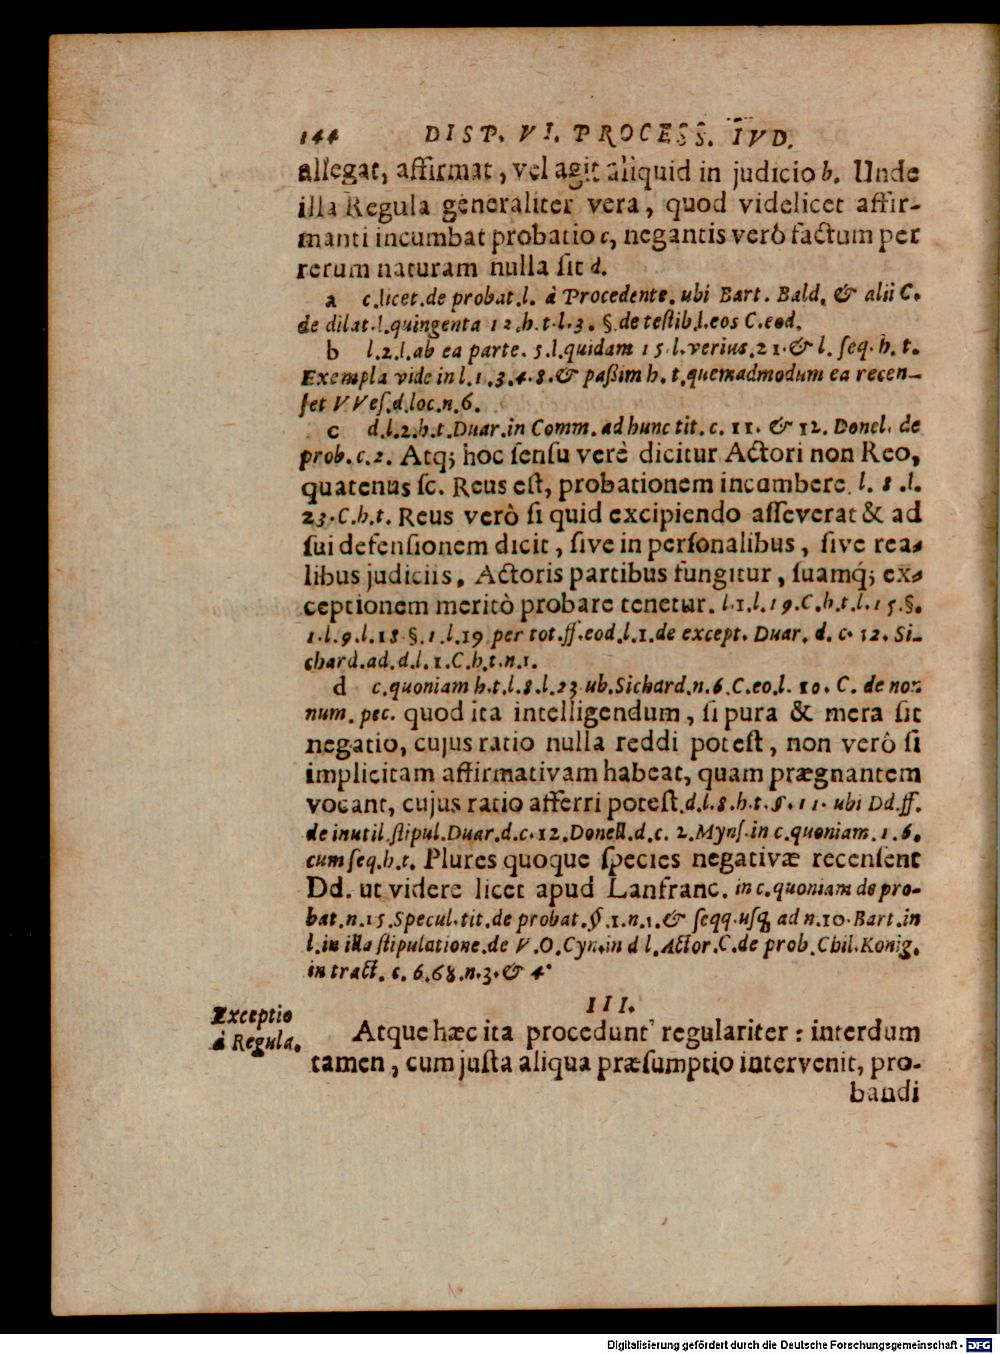 144 DIST. VI. PROCESS. IVD.
allegat, affirmat, vel agit aliquid in judicio b. Unde
illa Regula generaliter vera, quod videlicet affir-
manti incumbat probatio c, negantis verò factum per
rerum naturam nulla ſit d.
a c. licet. de probat. l. à Procedente. ubi Bart. Bald. & alii C.
de dilat. l. quingenta 12. h. t. l. 3. §. de teſtib. l. eos C. eod.
b l. 2. l. ab ea parte. 5. l. quidam 15. l. verius. 21. & l. ſeq. h. t.
Exempla vide in l. 1. 3. 4. 8. & paßim h. t. quemadmodum ea recen-
ſet VVeſ. d. loc. n. 6.
c d. l. 2. h. t. Duar. in Comm. ad hunc tit. c. 11. & 12. Donel. de
prob. c. 2. Atq; hoc ſenſu verè dicitur Actori non Reo,
quatenus ſc. Reus eſt, probationem incumbere. l. 8. l.
23. C. h. t. Reus verò ſi quid excipiendo aſſeverat & ad
ſui defenſionem dicit, ſive in perſonalibus, ſive rea-
libus judiciis, Actoris partibus fungitur, ſuamq́; ex-
ceptionem meritò probare tenetur. l. 1. l. 19. C. h. t. l. 15. §.
1. l. 9. l. 18. §. 1. l. 19 per tot. ff. eod. l. 1. de except. Duar. d. c. 12. Si-
chard. ad. d. l. 1. C. h. t. n. 1.
d c. quoniam h. t. l. 8. l. 23 ub. Sichard. n. 6. C. eo. l. 10. C. de non
num. pec. quod ita intelligendum, ſi pura & mera ſit
negatio, cujus ratio nulla reddi poteſt, non verò ſi
implicitam affirmativam habeat, quam prægnantem
vocant, cujus ratio afferri poteſt. d. l. 8. h. t. §. 11. ubi Dd. ff.
de inutil. ſtipul. Duar. d. c. 12. Donell. d. c. 2. Mynſ. in c. quoniam. 1. 6.
cum ſeq. h. t. Plures quoque ſpecies negativæ recenſent
Dd. ut videre licet apud Lanfranc. in c. quoniam de pro-
bat. n. 15. Specul. tit. de probat. §. 1. n. 1. & ſeqq. uſq; ad n. 10. Bart. in
l. in illa ſtipulatione. de V. O. Cyn. in d l. Actor. C. de prob. Chil. Konig.
in tract. c. 6. 68. n. 3. & 4.
III.
Exceptio
à Regula.
Atque hæc ita procedunt regulariter: interdum
tamen, cum juſta aliqua præſumptio intervenit, pro-
bandi
Digitalisierung gefördert durch die Deutsche Forschungsgemeinschaft - DFG